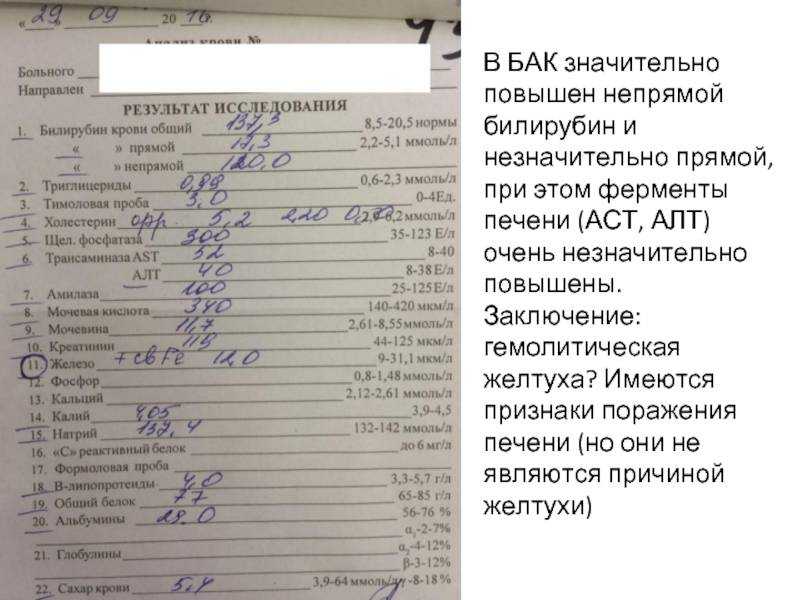 « 29 » 09 20 16 г.
Анализ крови №
Больного
Направлен
РЕЗУЛЬТАТ ИССЛЕДОВАНИЯ
1. Билирубин крови общий 137,3 8,5-20,5 нормы
« » прямой 17,3 2,2-5,1 ммоль/л
« » непрямой 120,0
2. Триглицериды 0,99 0,6-2,3 ммоль/л
3. Тимоловая проба 3,0 0-4Ед.
4. Холестерин 5,2 ммоль/л
5. Щел. фосфатаза 300 35-123 Е/л
6. Трансаминаза AST 52 8-40
АЛТ 40 8-38 Е/л
7. Амилаза 100 25-125 Е/л
8. Мочевая кислота 340 140-420 мкм/л
9. Мочевина 11,7 2,61-8,55 ммоль/л
10. Креатинин 115 44-125 мкм/л
11. Железо 12,0 9-31,1 мкм/л
12. Фосфор 0,8-1,48 ммоль/л
13. Кальций 2,12-2,61 ммоль/л
14. Калий 4,05 3,9-4,5
15. Натрий 137,4 132-142 ммоль/л
16. «С» реактивный белок до 6 мг/л
17. Формоловая проба
18. В-липопротеиды 4,0 3,3-5,7 г/л
19. Общий белок 77 65-85 г/л
20. Альбумины 29.0 56-76 %
α₁-2-7%
21. Глобулины α₂-4-12%
β-3-12%
22. Сахар крови 5,4 3,9-64 ммоль/л -8-18 %
В БАК значительно
повышен непрямой
билирубин и
незначительно прямой,
при этом ферменты
печени (АСТ, АЛТ)
очень незначительно
повышены.
Заключение:
гемолитическая
желтуха? Имеются
признаки поражения
печени (но они не
являются причиной
желтухи)